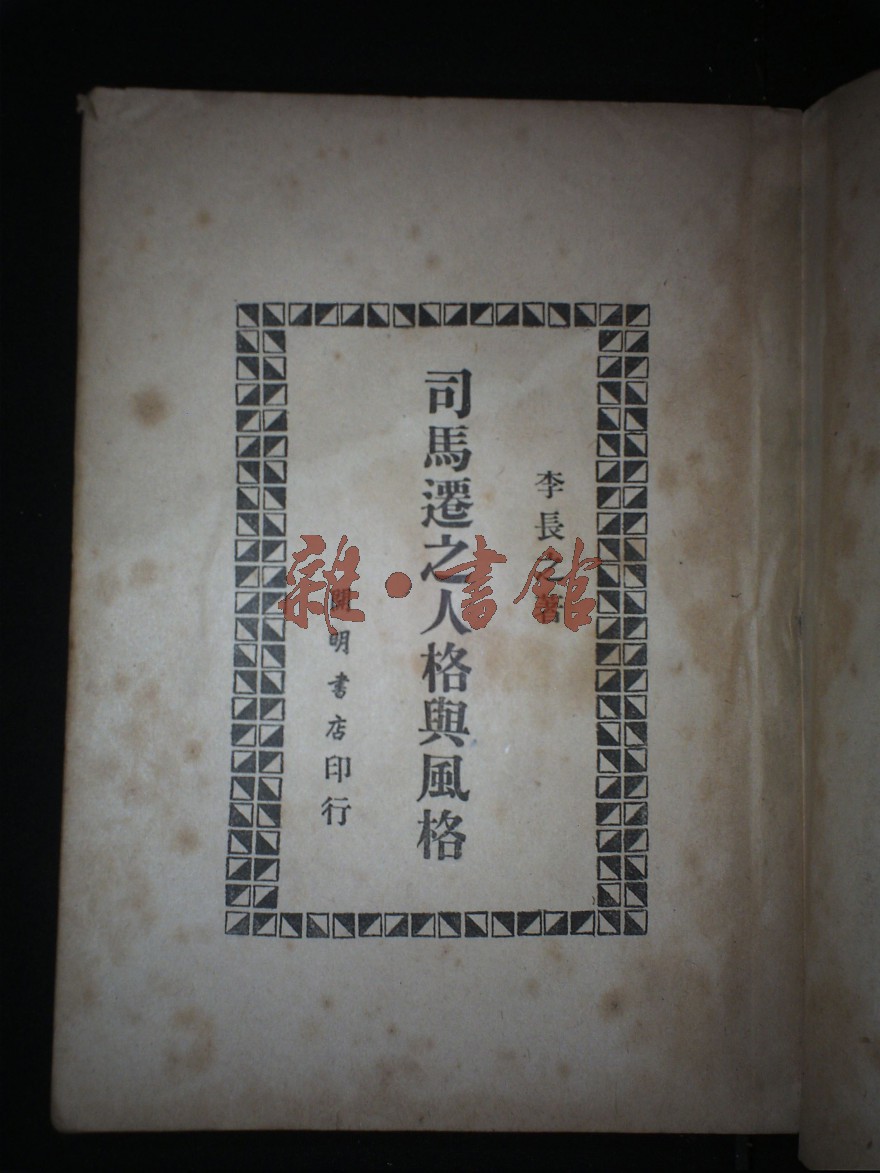 李長之著
司馬遷之人格與風格
開明書店印行
雜·書館